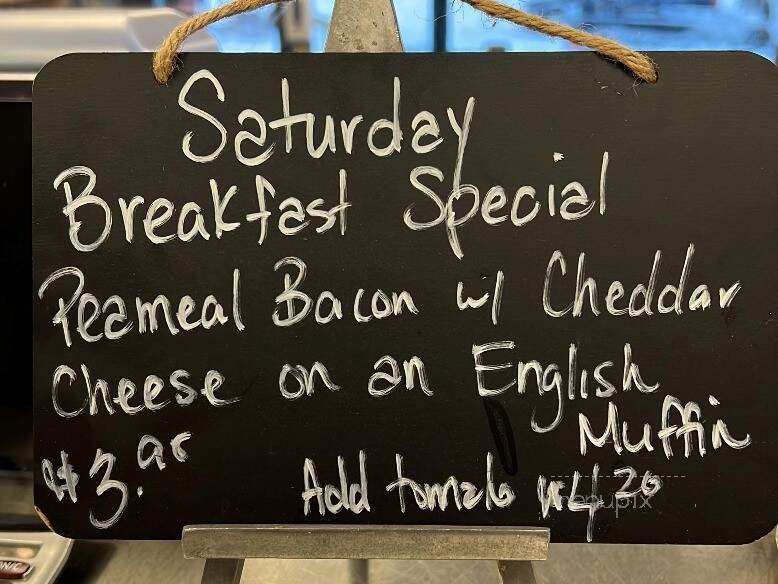 Saturday
Breakfast Special
Peameal Bacon w/ Cheddar
Cheese on an English
Muffin
$3.95
Add tomato